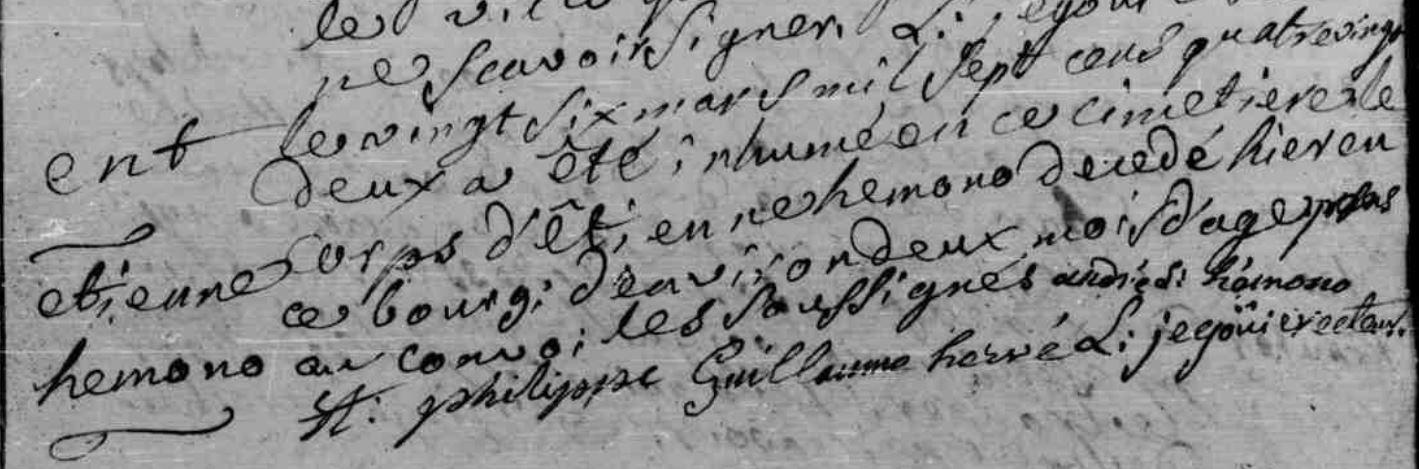 ne scavoir signer. L. j
ent
le vingt six mars mil sept cens quatre vingt
deux a été inhumé en ce cimetiere le
etienne
hemono
corps d'êtienne hemono decedé hier en
ce bourg; d'environ deux mois d'age prèsens
au convoi les soussignés andré hémono
St: philippe Guillaume hervé L: jegoüic recteur.